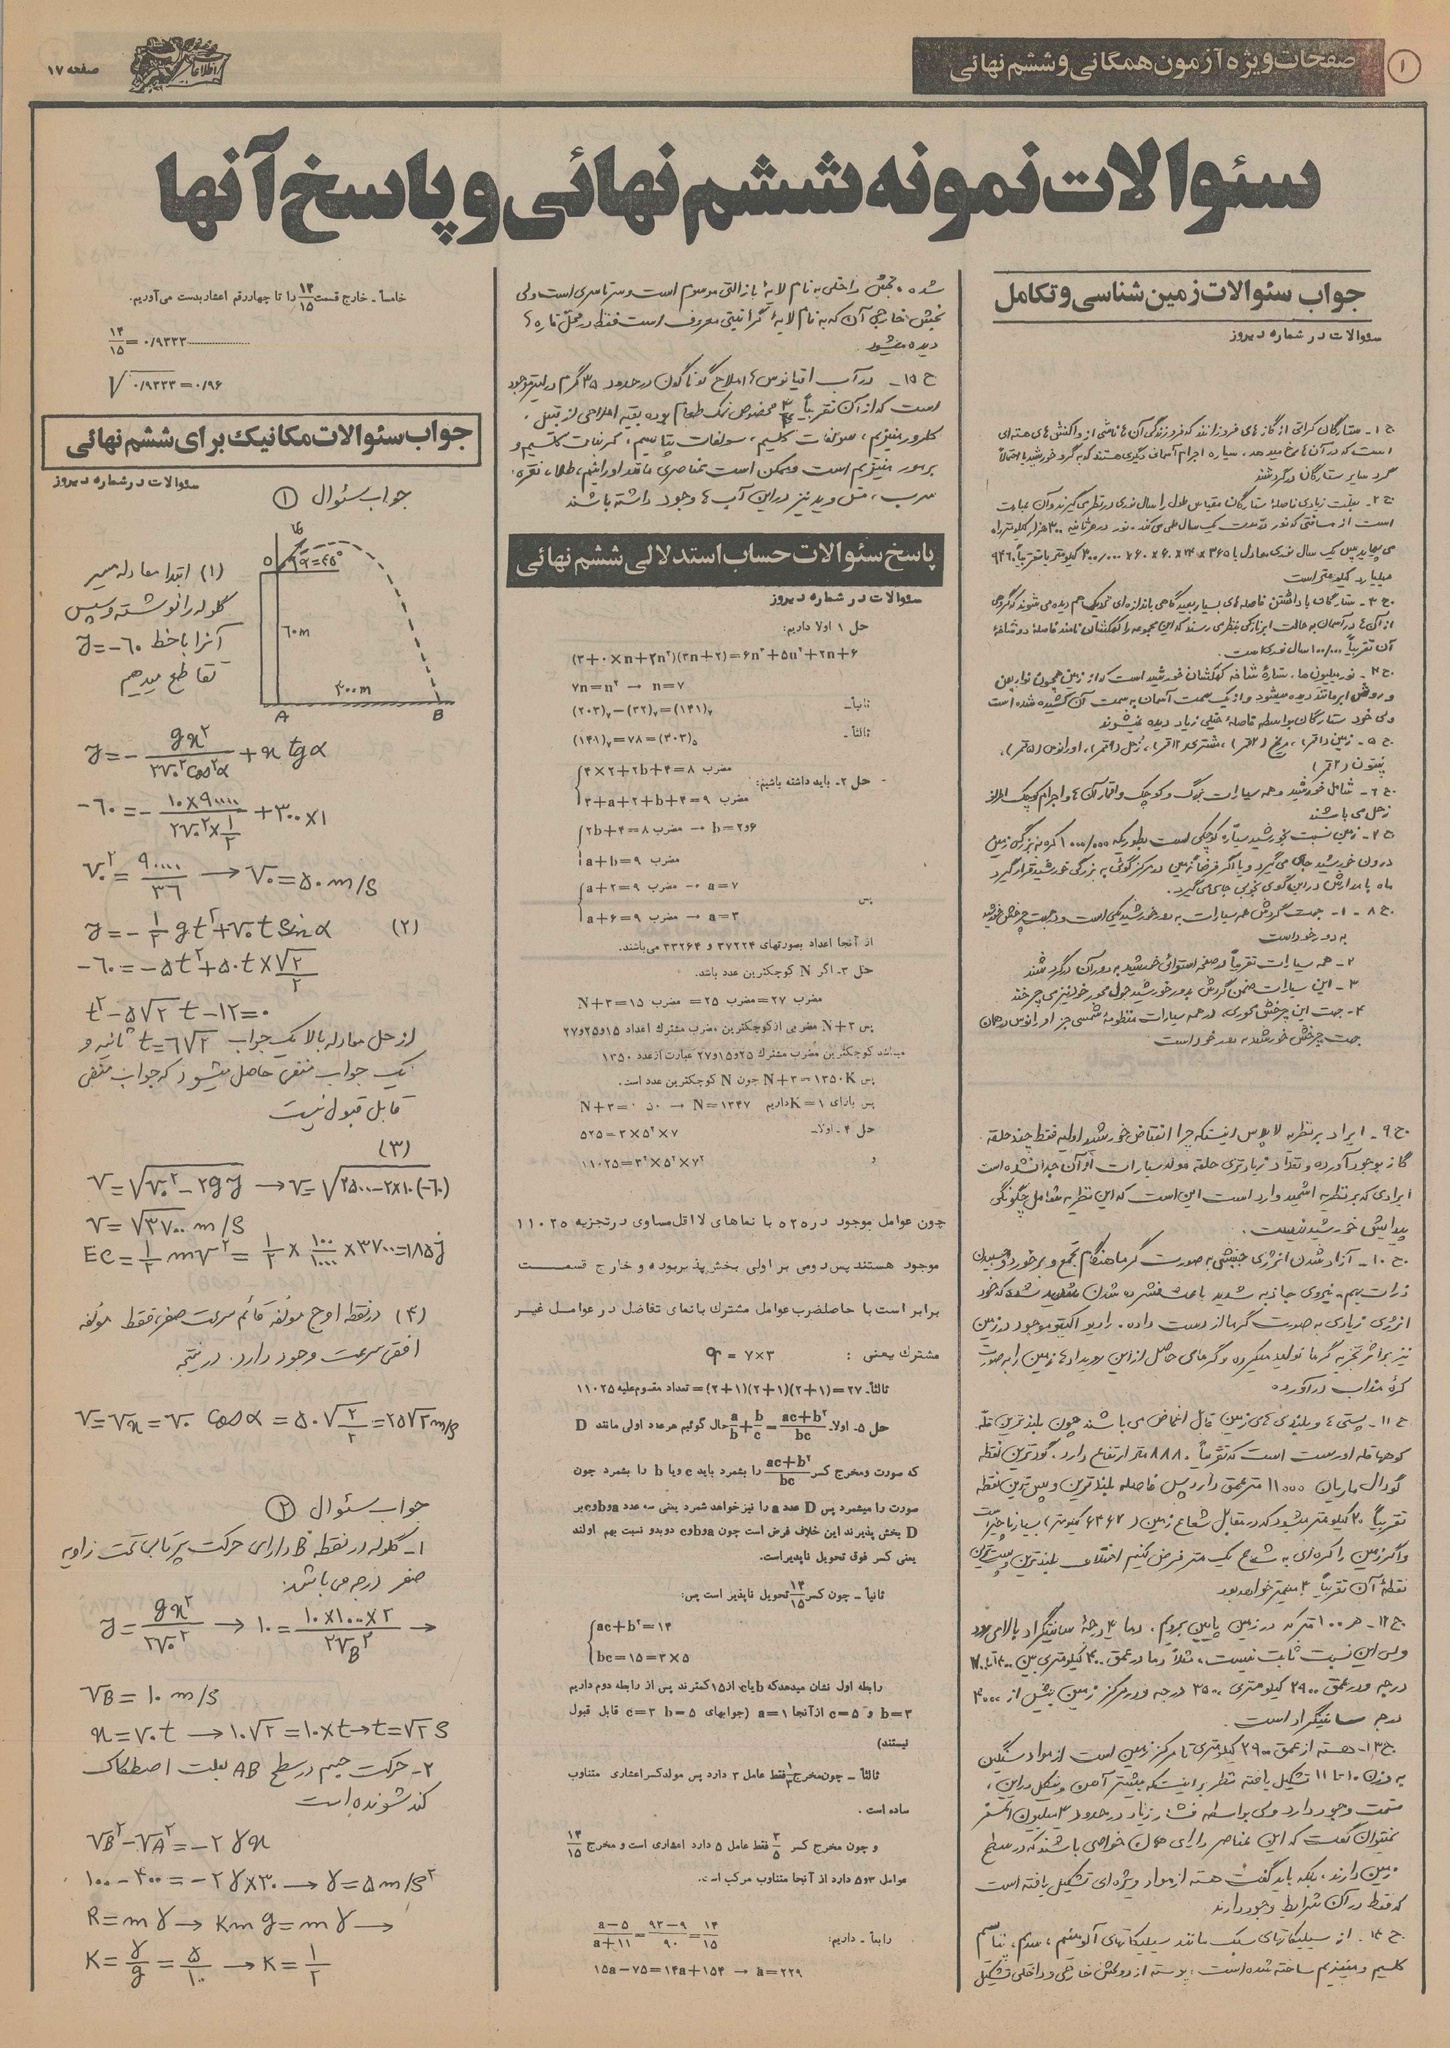 ۱
صفحات ویژه آزمون همگانی و ششم نهائی
اطلاعات
صفحه ۱۷
سئوالات نمونه ششم نهائی و پاسخ آنها
جواب سئوالات زمین شناسی و تکامل
سئوالات در شماره دیروز
ج ۱- ستارگان کراتی از گاز های فروزانند که فروزندگی آن ها ناشی از واکنش های هسته ای
است که در آن ها رخ میدهد. سیاره اجرام آسمانی دیگری هستند که به گرد خورشید یا احتمالاً
گرد سایر ستارگان در گردشند
ج ۲- بعلت زیادی فاصلهٔ ستارگان مقیاس طول را سال نوری در نظر می گیرند و آن عبارت
است از مسافتی که نور در مدت یک سال طی می کند. نور در هر ثانیه ۳۰۰ هزار کیلومتر راه
می پیماید پس یک سال نوری معادل با ۳۶۵×۲۴×۶۰×۶۰×۳۰۰/۰۰۰ کیلومتر یا تقریباً ۹۴۶۰
میلیارد کیلومتر است
ج ۳- ستارگان با داشتن فاصله های بسیار بعید گاهی باندازه ای نزدیک هم دیده می شوند که گروهی
از آن ها در آسمان به حالت ابر نازکی بنظر می رسند که این مجموعه را کهکشان نامند فاصلهٔ دو شاخهٔ
آن تقریباً ۱۰۰/۰۰۰ سال نوری است.
ج ۴- نور میلیون ها ستارهٔ شاخه کهکشان خورشید است که از زمین همچون نوار پهن
و روشن ابر مانند دیده میشود و از یک سمت آسمان به سمت آن کشیده شده است
ولی خود ستارگان بواسطه فاصلهٔ خیلی زیاد دیده نمیشوند
ج ۵- زمین (۱ قمر)، مریخ (۲ قمر)، مشتری (۱۲ قمر)، زحل (۹ قمر)، اورانوس (۵ قمر)،
نپتون (۲ قمر)
ج ۶- شامل خورشید و همه سیارات بزرگ و کوچک و اقمار آن ها و اجرام کوچک اطراف
زحل می باشند
ج ۷- زمین نسبت بخورشید سیّاره کوچکی است بطوریکه ۱/۰۰۰/۰۰۰ کره به بزرگی زمین
درون خورشید جای می گیرد و یا اگر فرضاً زمین در مرکز گوئی به بزرگی خورشید قرار گیرد
ماه با مدارش در این گوی بخوبی جای می گیرد.
ج ۸- ۱- جهت گردش همه سیارات به دور خورشید یکی است و در جهت چرخش خورشید
به دور خود است
۲- همه سیارات تقریباً در صفحه استوائی خورشید به دور آن در گردشند
۳- این سیارات ضمن گردش بدور خورشید حول محور خود نیز می چرخند
۴- جهت این چرخش محوری، در همه سیارات منظومهٔ شمسی جز اورانوس در همان
جهت چرخش خورشید به دور خود است
ج ۹- ایراد بر نظریه لاپلاس اینستکه چرا انقباض خورشید اولیه فقط چند حلقه
گاز بوجود آورده و تعداد زیادتری حلقه مولد سیارات از آن جدا نشده است
ایرادی که بر نظریه اشمید وارد است این است که این نظریه شامل چگونگی
پیدایش خورشید نیست.
ج ۱۰- آزاد شدن انرژی جنبشی به صورت گرما هنگام تجمع و برخورد و چسبیدن
ذرات بهم - نیروی جاذبه شدید باعث فشرده شدن شدید شده که خود
انرژی زیادی به صورت گرما از دست داده. رادیو اکتیو موجود در زمین
نیز بر اثر تجزیه گرما تولید میکرده و گرمای حاصل از این رویدادها زمین را به صورت
کرهٔ مذاب در آورده
ج ۱۱- پستی ها و بلندی های زمین قابل اغماض می باشند چون بلندترین قله
کوهها قله اورست است که تقریباً ۸۸۸۰ متر ارتفاع دارد. گودترین نقطه
گودال ماریان ۱۱۰۰۰ متر عمق دارد پس فاصله بلندترین و پس ترین نقطه
تقریباً ۲۰ کیلومتر میشود که در مقابل شعاع زمین (۶۳۶۲ کیلومتر) بسیار ناچیز است
و اگر زمین را کره ای به شعاع یک متر فرض کنیم اختلاف بلندترین و پست ترین
نقطهٔ آن تقریباً ۳ میلیمتر خواهد بود
ج ۱۲- هر ۱۰۰ متر که در زمین پایین برویم. دما ۳ درجهٔ سانتیگراد بالا می رود
ولی این نسبت ثابت نیست، مثلاً دما در عمق ۴۰۰ کیلومتری بین ۱۴۰۰ تا ۱۷۰۰
درجه و در عمق ۲۹۰۰ کیلومتری ۳۵۰۰ درجه و در مرکز زمین بیش از ۴۰۰۰
درجه سانتیگراد است.
ج ۱۳- هسته از عمق ۲۹۰۰ کیلومتری تا مرکز زمین است از مواد سنگین
به وزن ۱۰ تا ۱۱ تشکیل یافته نظر بر اینست که بیشتر آهن و نیکل در این
قسمت وجود دارد ولی بواسطه فشار زیاد در حدود ۳ میلیون اتمسفر
نمیتوان گفت که این عناصر دارای همان خواصی باشند که در سطح
زمین دارند، بلکه باید گفت هسته از مواد ویژه ای تشکیل یافته است
که فقط در آن شرایط وجود دارند
ج ۱۴- از سیلیکاتهای سبک مانند سیلیکاتهای آلومینیم، سدیم، پتاسیم
کلسیم و منیزیم ساخته شده است، پوسته از دو بخش خارجی و داخلی تشکیل
شده، بخش داخلی به نام لایهٔ بازالتی موسوم است و سرتاسری است ولی
بخش خارجی آن که به نام لایهٔ گرانیتی معروف است فقط در محل قاره ها
دیده میشود
ج ۱۵- در آب اقیانوس ها املاح گوناگون در حدود ۳۵ گرم در لیتر موجود
است که از آن تقریباً ۳/۴ مخصوص نمک طعام بوده بقیه املاحی از قبیل
کلرور منیزیم، سولفات کلسیم، سولفات پتاسیم، کربنات کلسیم و
برمور منیزیم است و ممکن است عناصری مانند اورانیم، طلا، نقره
سرب، مس و ید نیز در این آب ها وجود داشته باشند
پاسخ سئوالات حساب استدلالی ششم نهائی
سئوالات در شماره دیروز
حل ۱ اولا داریم:
(۳+۰×n+۲n²)(۳n+۲)=۶n³+۵n²+۲n+۶
۷n=n² → n=۷
ثانیاً- (۲۰۳)₇-(۳۲)₇=(۱۴۱)₇
ثالثاً- (۱۴۱)₇=۷۸=(۳۰۳)₅
حل ۲- باید داشته باشیم: {۴×۲+۲b+۴=۸ مضرب
۳+a+۲+b+۴=۹ مضرب
{۲b+۴=۸ مضرب → b=۲و۶
a+b=۹ مضرب
پس {a+۲=۹ مضرب → a=۷
a+۶=۹ مضرب → a=۳
از آنجا اعداد بصورتهای ۳۷۲۲۴ و ۳۳۲۶۴ می‌باشند.
حل ۳- اگر N کوچکترین عدد باشد.
N+۳=۱۵ مضرب =۲۵ مضرب =۲۷ مضرب
پس N+۳ مضربی از کوچکترین مضرب مشترك اعداد ۱۵و۲۵و۲۷
میباشد کوچکترین مضرب مشترك ۲۵و۱۵و۲۷ عبارت از عدد ۱۳۵۰
پس N+۳=۱۳۵۰K چون N کوچکترین عدد است.
پس بازای K=۱ داریم N+۳=۱۳۵۰ → N=۱۳۴۷
حل ۴- اولا- ۵۲۵=۳×۵²×۷
و ۱۱۰۲۵=۳²×۵²×۷²
چون عوامل موجود در ۵۲۵ با نماهای لااقل مساوی در تجزیه ۱۱۰۲۵
موجود هستند پس دومی بر اولی بخش پذیر بوده و خارج قسمت
برابر است با حاصلضرب عوامل مشترك با نمای تفاضل در عوامل غیر
مشترك یعنی: q = ۷×۳
ثالثاً- ۲۷=(۲+۱)(۲+۱)(۲+۱)= تعداد مقسوم‌علیه ۱۱۰۲۵
حل ۵- اولا- a/b + b/c = (ac+b²)/bc حال گوئیم هر عدد اولی مانند D
که صورت و مخرج کسر (ac+b²)/bc را بشمرد باید c و یا b را بشمرد چون
صورت را میشمرد پس D عدد a را نیز خواهد شمرد یعنی سه عدد a و b و c بر
D بخش پذیرند این خلاف فرض است چون a و b و c دوبدو نسبت بهم اولند
یعنی کسر فوق تحویل ناپذیر است.
ثانیاً - چون کسر ۱۴/۱۵ تحویل ناپذیر است پس:
{ac+b²=۱۴
bc=۱۵=۳×۵
رابطه اول نشان میدهد که b یا c از ۱۵ کمترند پس از رابطه دوم داریم
b=۳ و c=۵ از آنجا a=۱ (جوابهای b=۵ c=۳ قابل قبول
نیستند)
ثالثاً - چون مخرج ۱/۳ فقط عامل ۳ دارد پس مولد کسر اعشاری متناوب
ساده است.
و چون مخرج کسر ۳/۵ فقط عامل ۵ دارد اعشاری است و مخرج ۱۴/۱۵
عوامل ۳و۵ دارد از آنجا متناوب مرکب است.
رابعاً - داریم: (a-۵)/(a+۱۱)=(۹۳-۹)/۹۰=۱۴/۱۵
۱۵a-۷۵=۱۴a+۱۵۴ → a=۲۲۹
خامساً - خارج قسمت ۱۴/۱۵ را تا چهار رقم اعشار بدست می‌آوریم.
۱۴/۱۵ = ۰/۹۳۳۳...........
√۰/۹۳۳۳ = ۰/۹۶
جواب سئوالات مکانیک برای ششم نهائی
سئوالات در شماره دیروز
جواب سئوال ①
V₀
O
α=۴۵°
۶۰m
۳۰۰m
A
B
(۱) ابتدا معادله مسیر
گلوله را نوشته و سپس
آنرا با خط y=-۶۰
تقاطع میدهیم
y=-gx²/۲V₀²cos²α + x tgα
-۶۰=-(۱۰×۹۰۰۰۰)/(۲V₀²×۱/۲)+۳۰۰×۱
V₀²=۹۰۰۰۰/۳۶ → V₀=۵۰ m/s
(۲) y=-۱/۲ gt²+V₀t sinα
-۶۰=-۵t²+۵۰t×√۲/۲
t²-۵√۲t-۱۲=۰
از حل معادله بالا یک جواب t=۶√۲ ثانیه و
یک جواب منفی حاصل میشود که جواب منفی
قابل قبول نیست
(۳)
V=√(V₀²-۲gy) → V=√(۲۵۰۰-۲×۱۰(-۶۰))
V=√۳۷۰۰ m/s
Ec=۱/۲ mV²=۱/۲×۱۰۰/۱۰۰۰×۳۷۰۰=۱۸۵j
(۴) در نقطه اوج مؤلفه قائم سرعت صفر، فقط مؤلفه
افقی سرعت وجود دارد. در نتیجه
V=Vx=V₀ cosα=۵۰√۲/۲=۲۵√۲ m/s
جواب سئوال ②
۱- گلوله در نقطه B دارای حرکت پرتابی تحت زاویه
صفر درجه می باشد:
y=gx²/۲V₀² → ۱۰=(۱۰×۱۰۰×۲)/۲V_B² →
V_B=۱۰ m/s
x=V₀t → ۱۰√۲=۱۰×t → t=√۲ s
۲- حرکت جسم در سطح AB بعلت اصطکاک
کند شونده است
V_B²-V_A²=-۲γx
۱۰۰-۴۰۰=-۲γ×۳۰ → γ=۵ m/s²
R=mγ → Kmg=mγ →
K=γ/g=۵/۱۰ → K=۱/۲